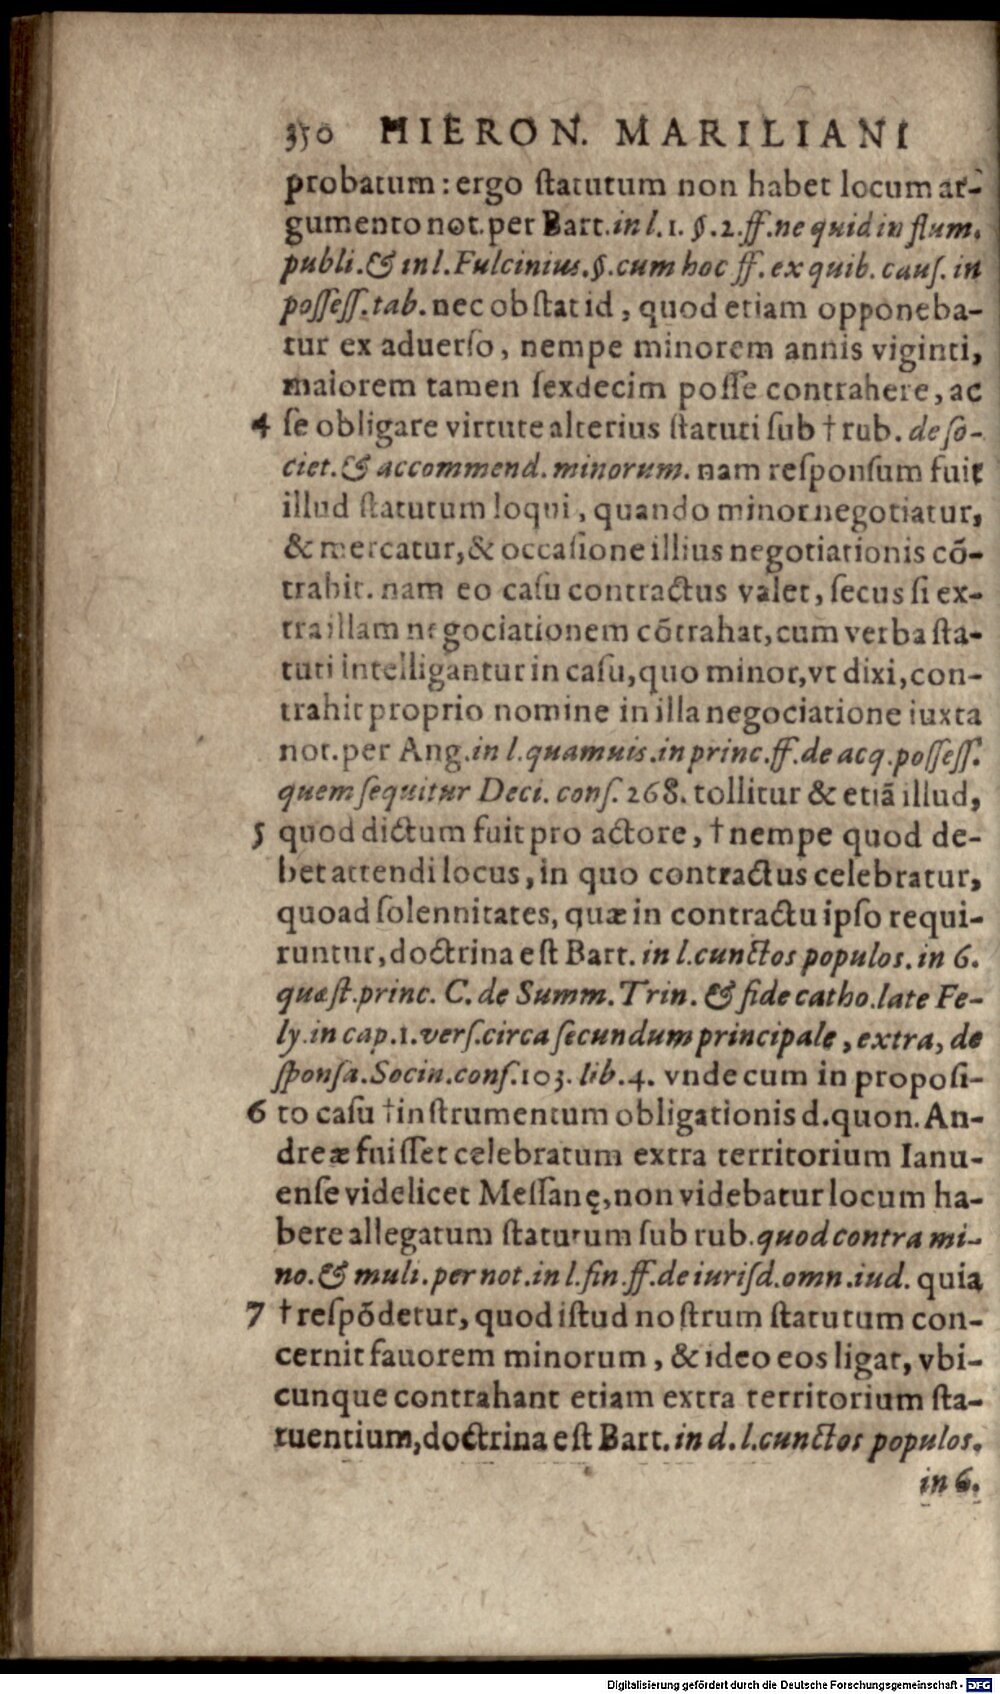 350 HIERON. MARILIANI
probatum: ergo ſtatutum non habet locum ar-
gumento not. per Bart. in l. 1. §. 2. ff. ne quid in flum.
publi. & in l. Fulcinius. §. cum hoc ff. ex quib. cauſ. in
poſſeſſ. tab. nec obſtat id, quod etiam opponeba-
tur ex aduerſo, nempe minorem annis viginti,
maiorem tamen ſexdecim poſſe contrahere, ac
4 ſe obligare virtute alterius ſtatuti ſub † rub. de ſo-
ciet. & accommend. minorum. nam reſponſum fuit
illud ſtatutum loqui, quando minor negotiatur,
& mercatur, & occaſione illius negotiationis cō-
trahit. nam eo caſu contractus valet, ſecus ſi ex-
tra illam negociationem cōtrahat, cum verba ſta-
tuti intelligantur in caſu, quo minor, vt dixi, con-
trahit proprio nomine in illa negociatione iuxta
not. per Ang. in l. quamuis. in princ. ff. de acq. poſſeſſ.
quem ſequitur Deci. conſ. 268. tollitur & etiā illud,
5 quod dictum fuit pro actore, † nempe quod de-
bet attendi locus, in quo contractus celebratur,
quoad ſolennitates, quæ in contractu ipſo requi-
runtur, doctrina eſt Bart. in l. cunctos populos. in 6.
quæſt. princ. C. de Summ. Trin. & fide catho. late Fe-
ly. in cap. 1. verſ. circa ſecundum principale, extra, de
ſponſa. Socin. conſ. 103. lib. 4. vnde cum in propoſi-
6 to caſu † inſtrumentum obligationis d. quon. An-
dreæ fuiſſet celebratum extra territorium Ianu-
enſe videlicet Meſſanę, non videbatur locum ha-
bere allegatum ſtatutum ſub rub. quod contra mi-
no. & muli. per not. in l. fin. ff. de iuriſd. omn. iud. quia
7 † reſpōdetur, quod iſtud noſtrum ſtatutum con-
cernit fauorem minorum, & ideo eos ligat, vbi-
cunque contrahant etiam extra territorium ſta-
tuentium, doctrina eſt Bart. in d. l. cunctos populos.
in 6.
Digitalisierung gefördert durch die Deutsche Forschungsgemeinschaft - DFG